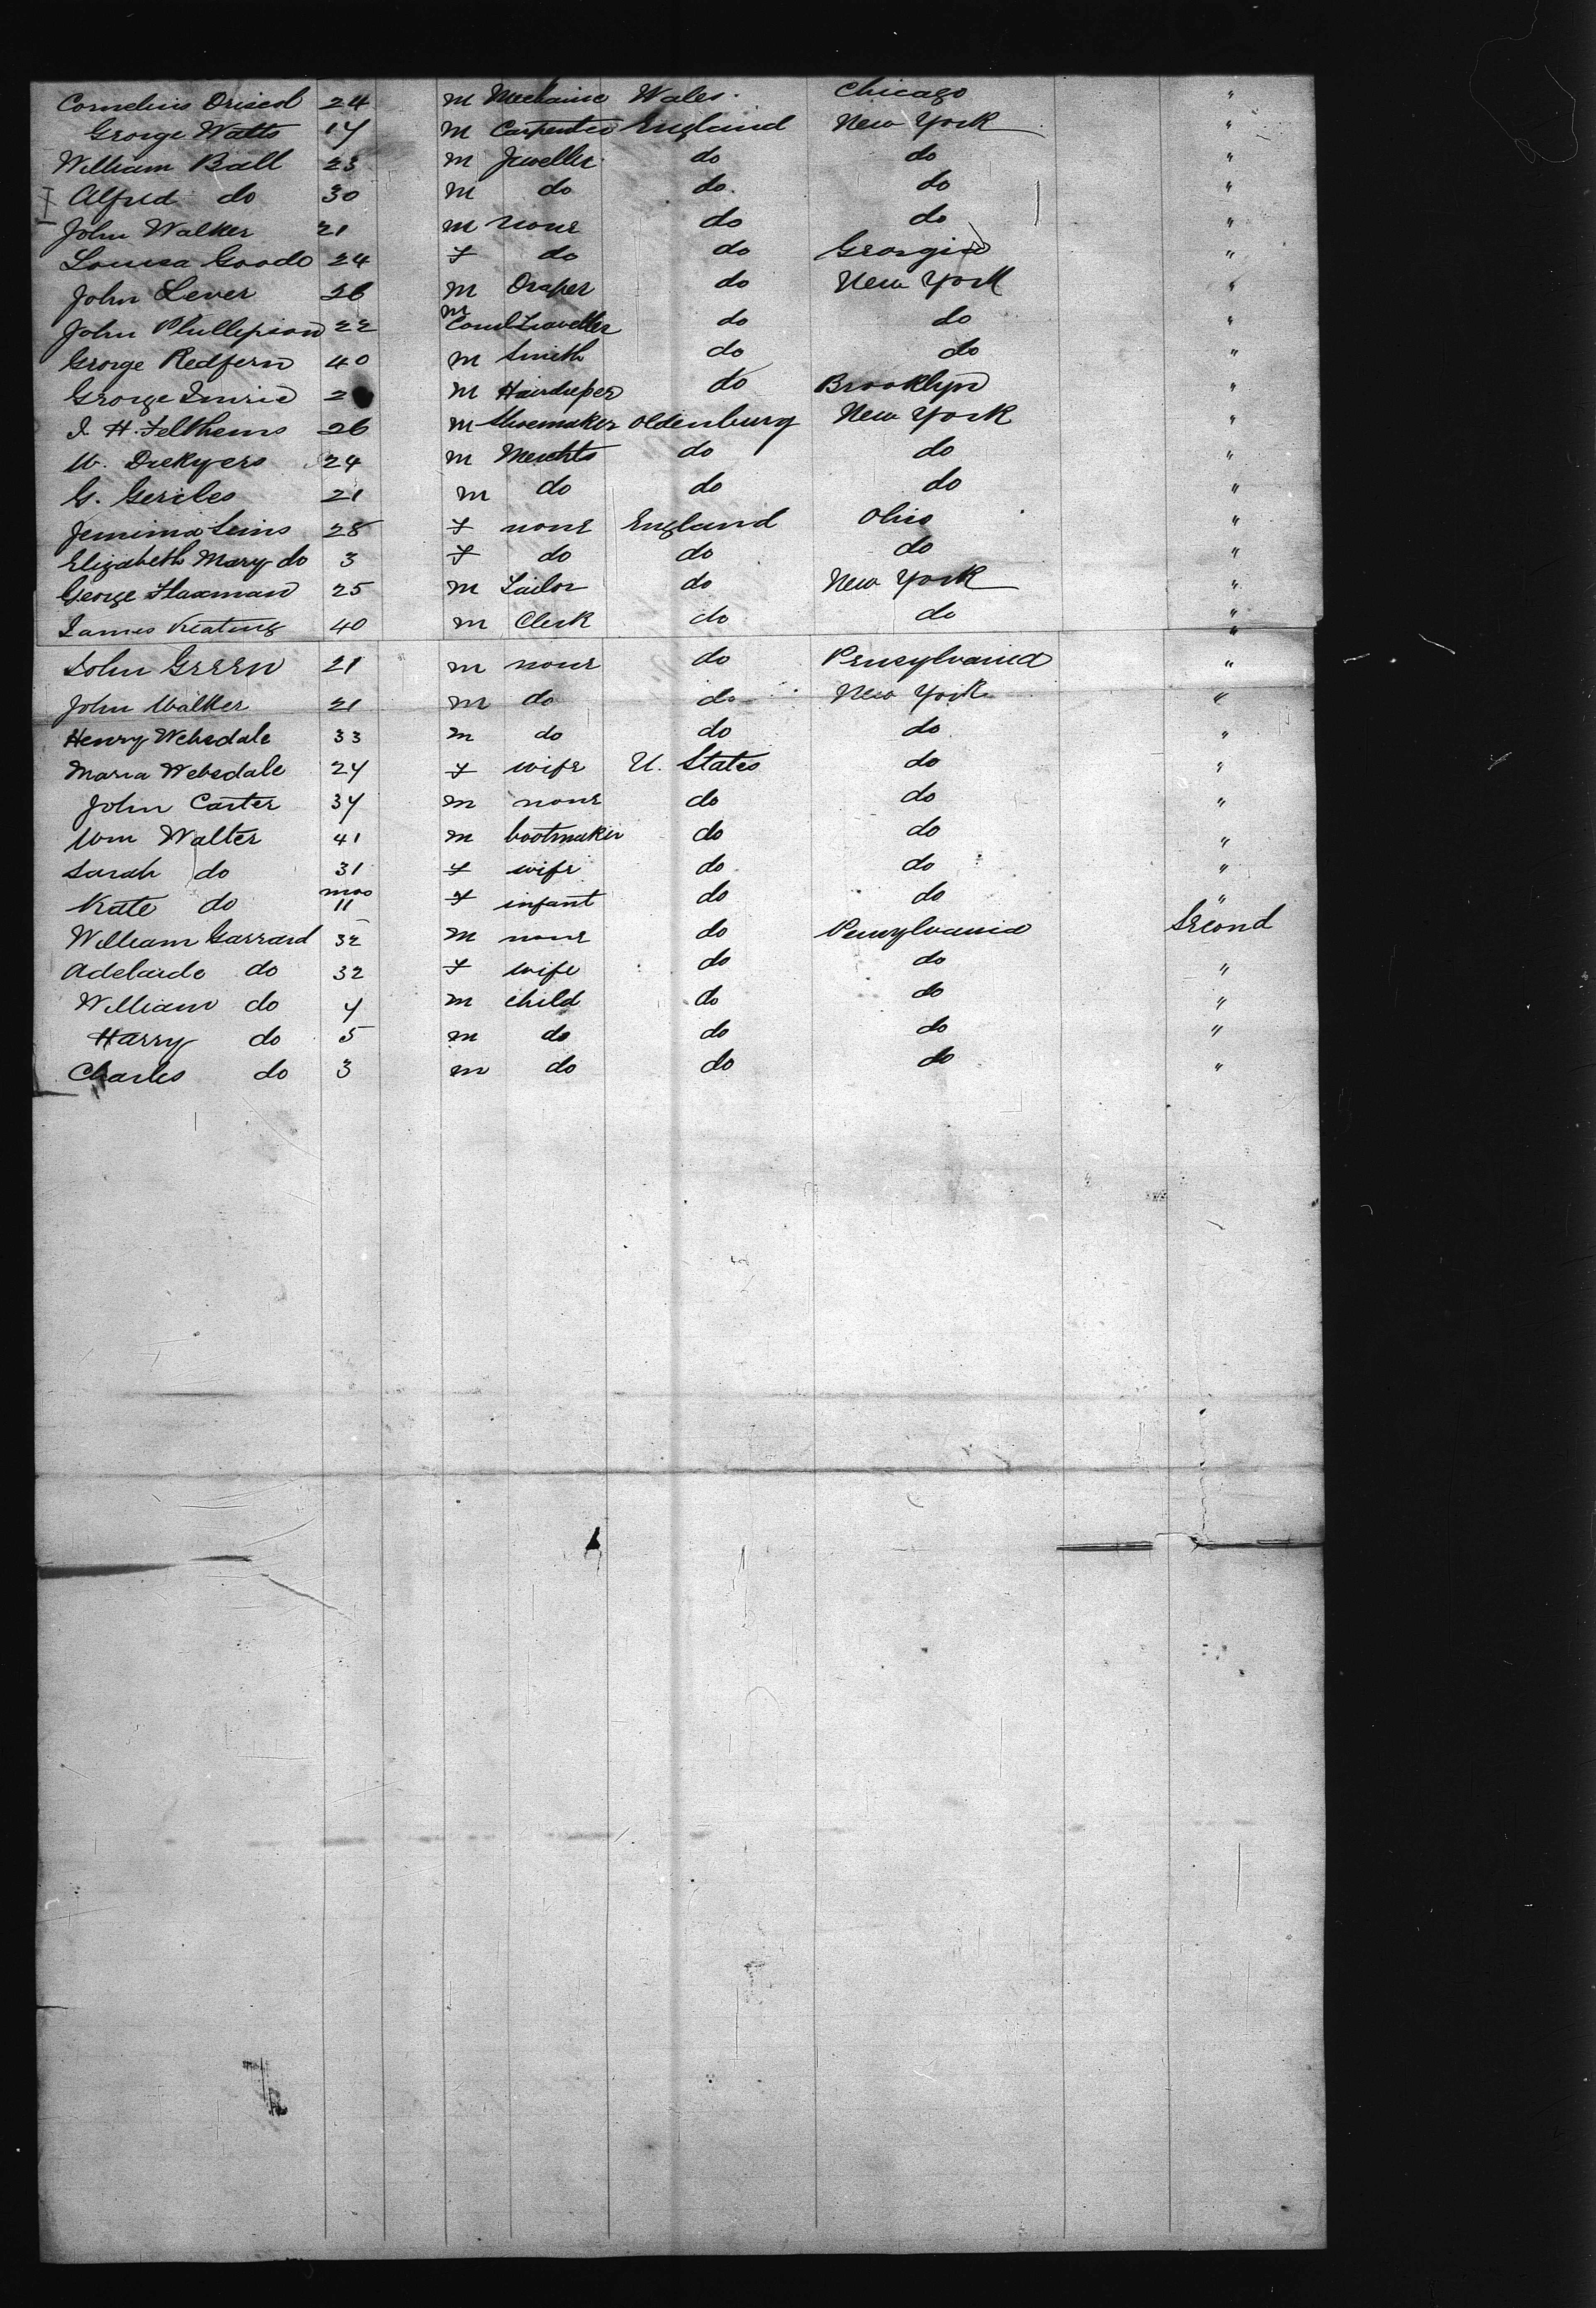 Cornelius Driscol 24 m Mechanic Wales. Chicago "
George Watts 17 m Carpenter England New York "
William Ball 23 m Jeweller do do "
Alfred do 30 m do do do "
John Walker 21 m none do do "
Louisa Goode 24 f do do Georgia "
John Lever 26 m Draper do New York "
John Phillipson 22 m Coml Traveller do do "
George Redfern 40 m Smith do do "
George Imrie 2 m Hairdresser do Brooklyn "
26 m Shoemaker Oldenburg New York "
W. 24 m Merchts do do "
G. 21 m do do do "
Jemima 28 f none England Ohio "
Elizabeth Mary do 3 f do do do "
George Flaxman 25 m Tailor do New York "
James Keating 40 m Clerk do do "
John Green 21 m none do Pensylvania "
John Walker 21 m do do New York "
Henry Websdale 33 m do do do "
Maria Websdale 24 f wife U. States do "
John Carter 34 m none do do "
Wm Walter 41 m bootmaker do do "
Sarah do 31 f wife do do "
Kate do mos 11 f infant do do "
William Garrard 32 m none do Pensylvania Second
Adelaide do 32 f wife do do "
William do 7 m child do do "
Harry do 5 m do do do "
Charles do 3 m do do do "